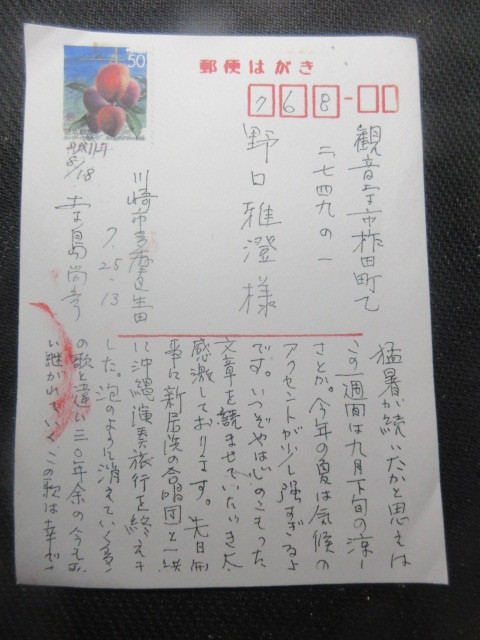 50
郵便はがき
768-
観音寺市柞田町乙
二七四九の一
野口雅澄様
8/18
川崎市多摩区生田
7.25.13
寺島尚彦
猛暑が続いたかと思えば
この一週間は九月下旬の涼し
さとか。今年の夏は気候の
アクセントが少し強すぎるよ
です。いつぞやは心のこもった
文章を読ませていただき大
感激しております。先日無
事に新居浜の合唱団と一緒
に沖縄演奏旅行を終えま
した。泡のように消えていく多く
の歌と違い三〇年余の今もお
い継がれていくこの歌は幸せ